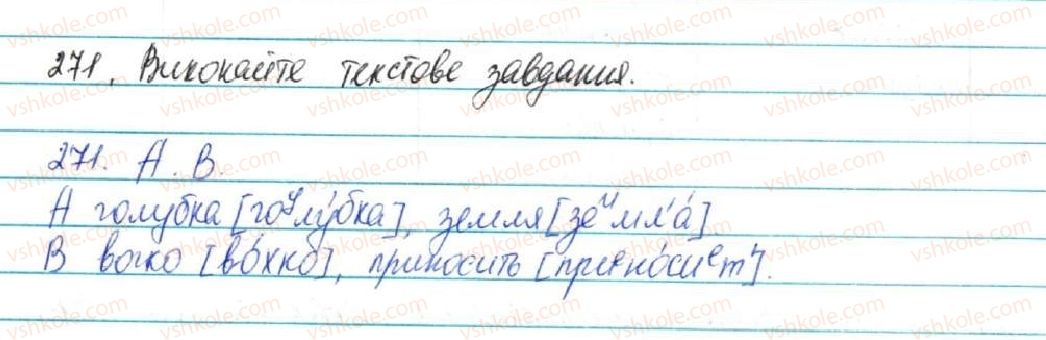 271. Виконайте текстове завдання.
271. А. В.
А голубка [гоᵘлу́бка], земля [зеᶦмл'а́].
В вогко [во́хко], приносить [приᵉно́сиᵉт'].